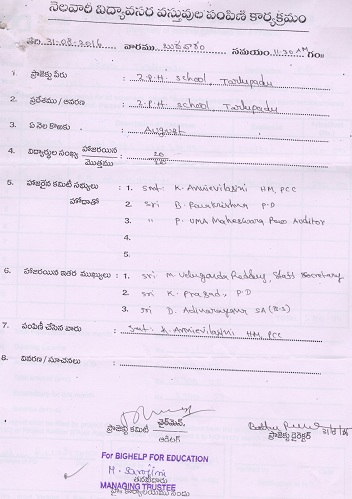 నెలవారీ విద్యావసర వస్తువుల పంపిణి కార్యక్రమం
తేది. 31-08-2016 వారము బుధవారం సమయం 11:30 AM గం॥
1. ప్రాజెక్టు పేరు : Z.P.H School, Tarlupadu
2. ప్రదేశము / ఆవరణ : Z.P.H School, Tarlupadu
3. ఏ నెల కొఱకు : August
4. విద్యార్థుల సంఖ్య హాజరయిన : 20
మొత్తము 20
5. హాజరైన కమిటీ సభ్యులు : 1. Smt. K. Annievilasini HM, PCC
హోదాతో 2. Sri B. Balakrishna P.D
3. " P. UMA Maheswara Rao Auditor
4.
5.
6. హాజరయిన ఇతర ముఖ్యులు : 1. Sri. M Venugonda Reddy, Staff Secretary
2. Sri K. Prasad, P.D
3. Sri D. Adinarayana SA (B.S)
7. పంపిణీ చేసిన వారు : Smt. K. Annievilasini HM, PCC
8. వివరణ / సూచనలు :
ప్రాజెక్ట్ కమిటీ చైర్మన్,
ఆడిటర్
ప్రాజెక్టు డైరెక్టర్ 31/8/16
For BIGHELP FOR EDUCATION
M. Sarojini
MANAGING TRUSTEE